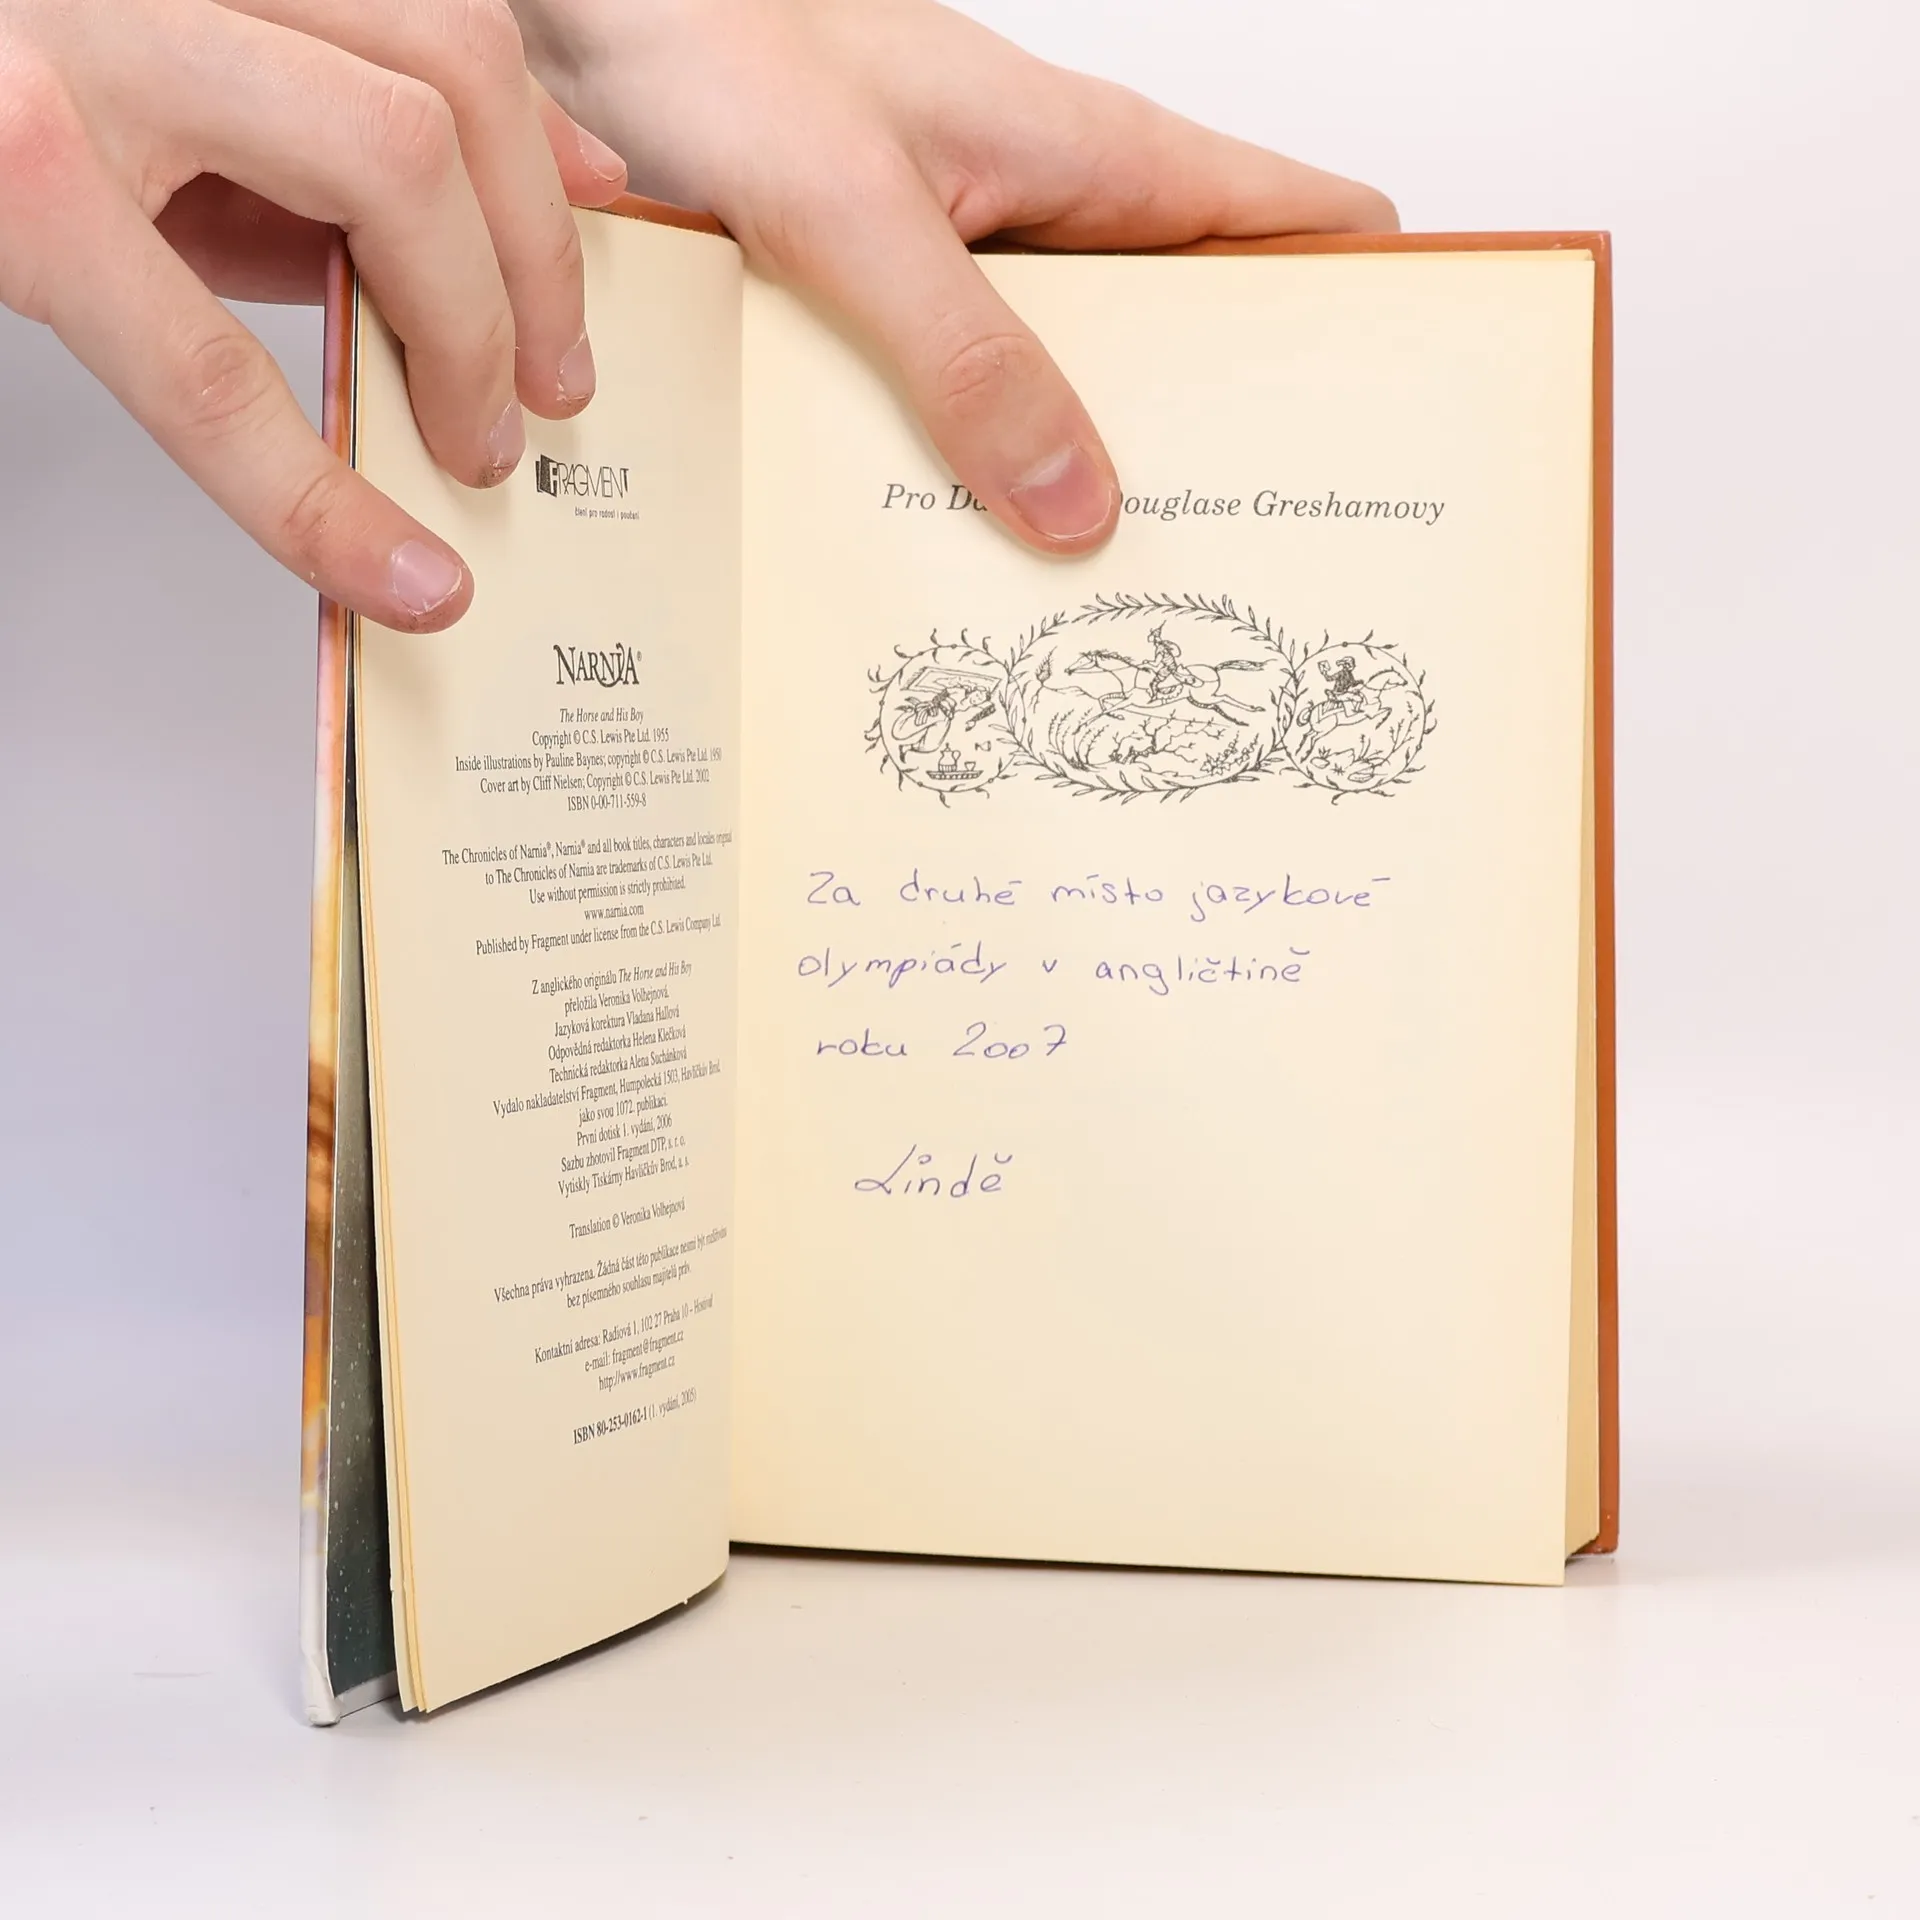 FRAGMENT
čtení pro radost i poučení
NARNIA®
The Horse and His Boy
Copyright © C.S. Lewis Pte Ltd. 1955
Inside illustrations by Pauline Baynes; copyright © C.S. Lewis Pte Ltd. 1950
Cover art by Cliff Nielsen; Copyright © C.S. Lewis Pte Ltd. 2002
ISBN 0-00-711-559-8
The Chronicles of Narnia®, Narnia® and all book titles, characters and locales original
to The Chronicles of Narnia are trademarks of C.S. Lewis Pte Ltd.
Use without permission is strictly prohibited.
www.narnia.com
Published by Fragment under license from the C.S. Lewis Company Ltd.
Z anglického originálu The Horse and His Boy
přeložila Veronika Volhejnová.
Jazyková korektura Vladana Hallová
Odpovědná redaktorka Helena Klečková
Technická redaktorka Alena Suchánková
Vydalo nakladatelství Fragment, Humpolecká 1503, Havlíčkův Brod,
jako svou 1072. publikaci.
První dotisk 1. vydání, 2006
Sazbu zhotovil Fragment DTP, s. r. o.
Vytiskly Tiskárny Havlíčkův Brod, a. s.
Translation © Veronika Volhejnová
Všechna práva vyhrazena. Žádná část této publikace nesmí být rozšiřována
bez písemného souhlasu majitelů práv.
Kontaktní adresa: Radiová 1, 102 27 Praha 10 – Hostivař
e-mail: fragment@fragment.cz
http://www.fragment.cz
ISBN 80-253-0162-1 (1. vydání, 2005)
Pro Greshamovy
Za druhé místo jazykové
olympiády v angličtině
roku 2007